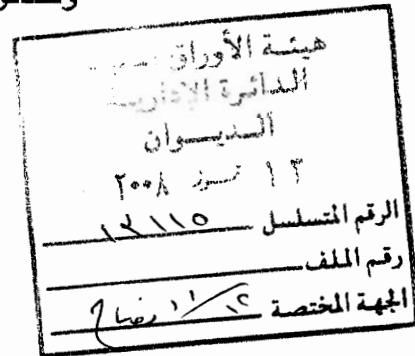 هيئة الأوراق
الدائرة الإدارية
الديوان
١٣ تموز ٢٠٠٨
الرقم المتسلسل ١٣١١٥
رقم الملف
الجهة المختصة